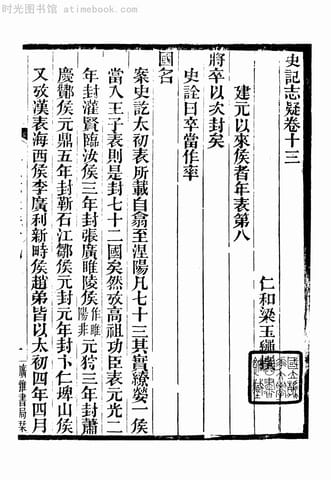 时光图书馆 atimebook.com
史記志疑卷十三
仁和梁玉繩撰
建元以來侯者年表第八
將卒以次封矣
史詮曰卒當作率
國名
案史訖太初表所載自翕至涅陽凡七十三其實繚嫈一侯
當入王子表則是封七十二國矣然攷高祖功臣表元光二
年封灌賢臨汝侯三年封張廣睢陵侯作睢陽非元狩三年封蕭
慶酇侯元鼎五年封靳石江鄒侯元封元年封卞仁埤山侯
又攷漢表海西侯李廣利新畤侯趙弟皆以太初四年四月
一
廣雅書局栞